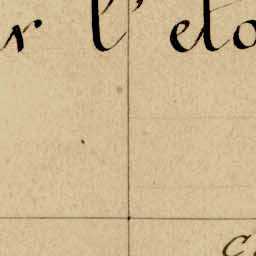 r l'eto
c